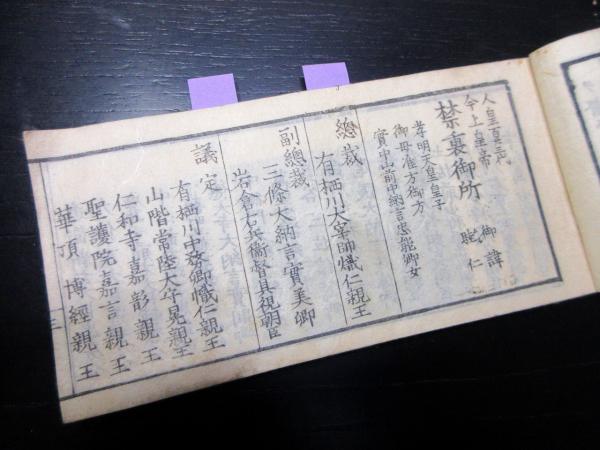 人皇百三代
今上皇帝 御諱
禁裏御所 睦仁
孝明天皇皇子
御母准后御方
實中山前中納言忠能卿女
總裁
有栖川太宰帥熾仁親王
副總裁
三條大納言實美卿
岩倉右兵衛督具視朝臣
議定
有栖川中務卿幟仁親王
山階常陸太守晃親王
仁和寺嘉彰親王
聖護院嘉言親王
華頂博經親王
三